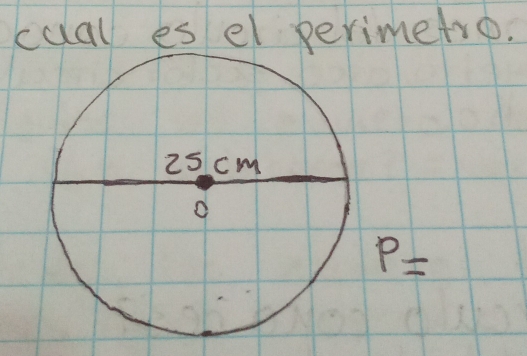 cual es el perimetro.
25 cm
o
P=